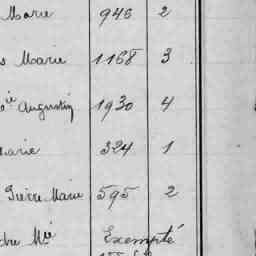 Marie 946 2
s Marie 1168 3
ie Augustin 1930 4
Marie 324 1
Pierre Marie 595 2
dre Mie Exempté